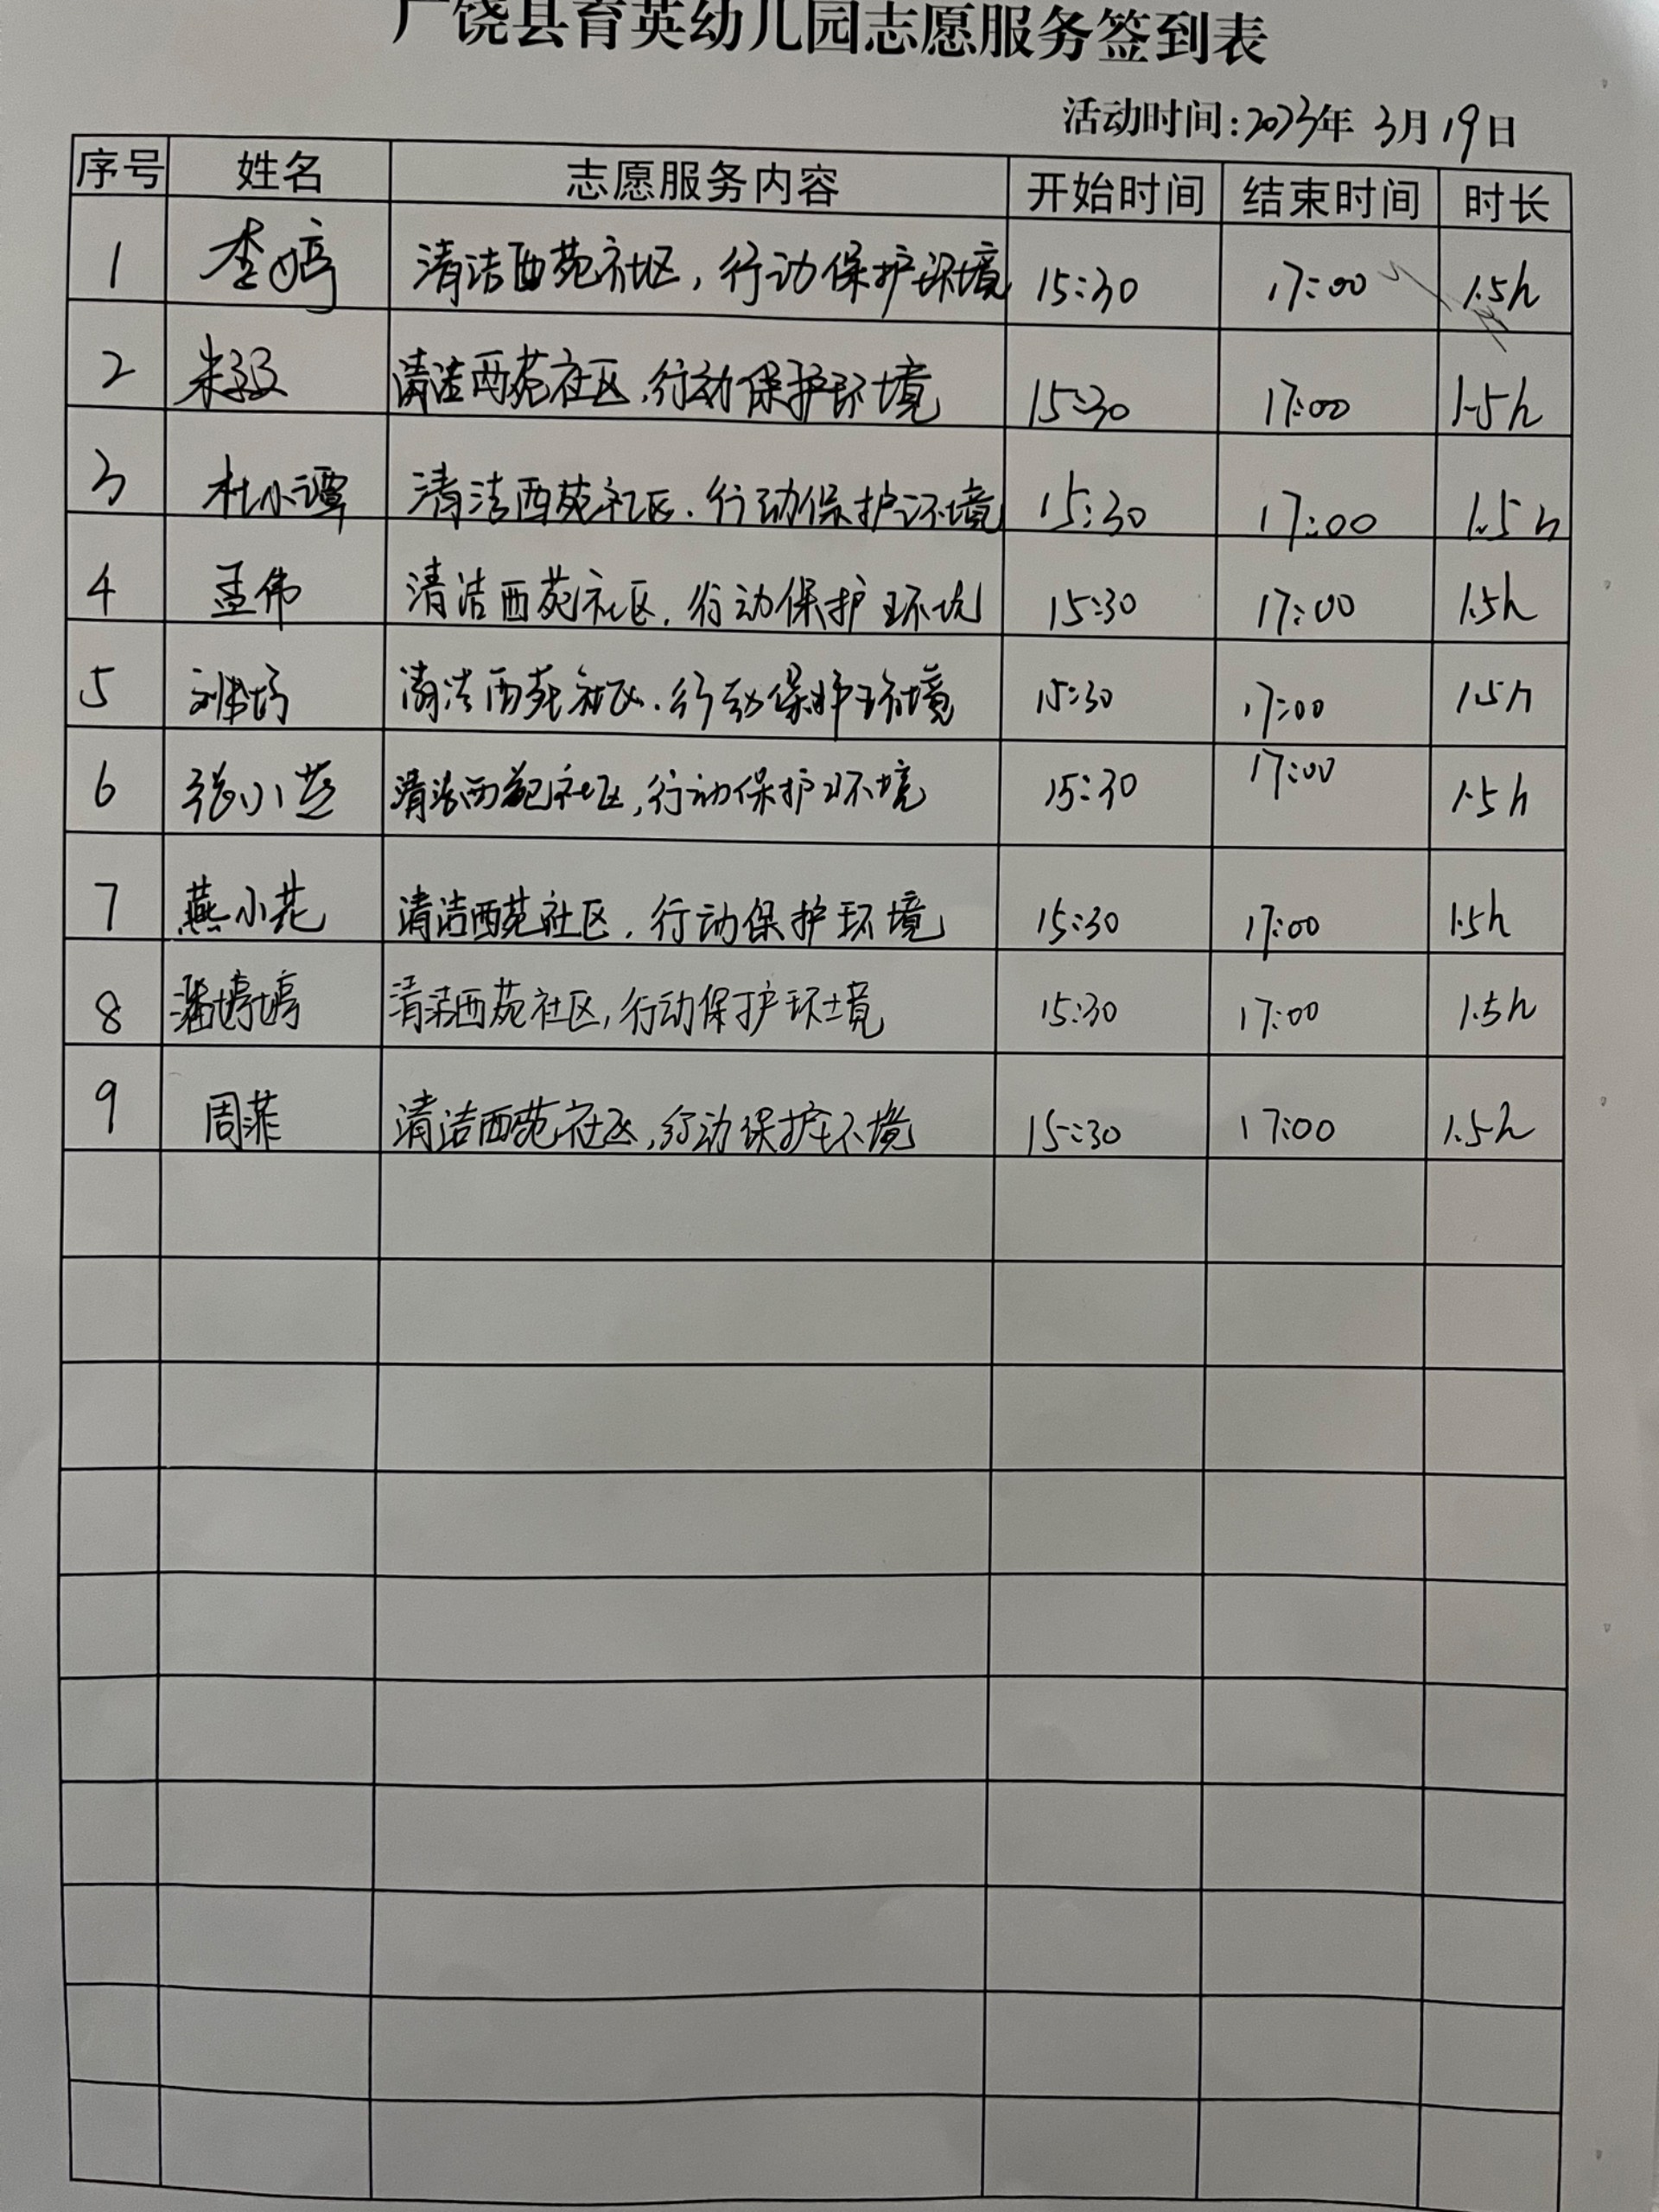 广饶县育英幼儿园志愿服务签到表
活动时间:2023年 3月 19日
序号 姓名 志愿服务内容 开始时间 结束时间 时长
1 李婷 清洁西苑社区，行动保护环境 15:30 17:00 1.5h
2 朱 清洁西苑社区，行动保护环境 15:30 17:00 1.5h
3 杜小谭 清洁西苑社区，行动保护环境 15:30 17:00 1.5h
4 孟伟 清洁西苑社区，行动保护环境 15:30 17:00 1.5h
5 清洁西苑社区，行动保护环境 15:30 17:00 1.5h
6 张小燕 清洁西苑社区，行动保护环境 15:30 17:00 1.5h
7 燕小花 清洁西苑社区，行动保护环境 15:30 17:00 1.5h
8 潘婷婷 清洁西苑社区，行动保护环境 15:30 17:00 1.5h
9 周菲 清洁西苑社区，行动保护环境 15:30 17:00 1.5h